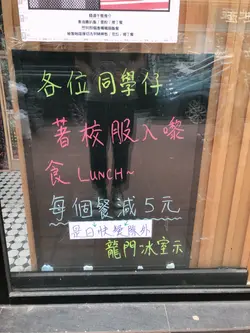 各位同學仔
著校服入嚟
食 LUNCH~
每個餐減5元
是日快餐除外
龍門冰室示